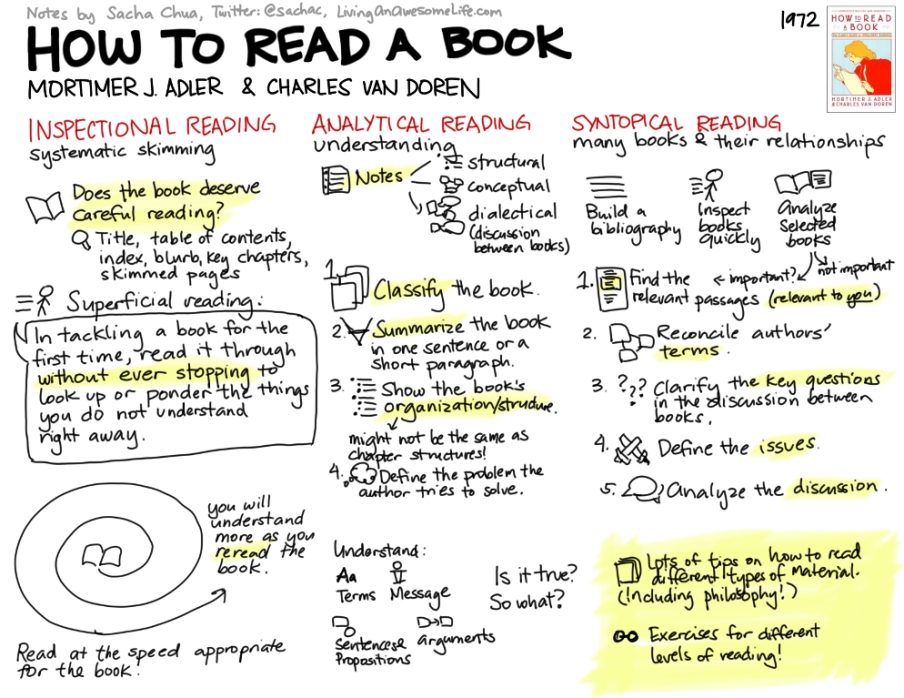 Notes by Sacha Chua, Twitter: @sachac, LivingAnAwesomeLife.com
HOW TO READ A BOOK
MORTIMER J. ADLER & CHARLES VAN DOREN
1972
HOW TO READ
A BOOK
MORTIMER J. ADLER
& CHARLES VAN DOREN
INSPECTIONAL READING
systematic skimming
Does the book deserve
careful reading?
Title, table of contents,
index, blurb, key chapters,
skimmed pages
Superficial reading:
In tackling a book for the
first time, read it through
without ever stopping to
look up or ponder the things
you do not understand
right away.
you will
understand
more as you
reread the
book.
Read at the speed appropriate
for the book.
ANALYTICAL READING
understanding
Notes
structural
conceptual
dialectical
(discussion
between books)
1. Classify the book.
2. Summarize the book
in one sentence or a
short paragraph.
3. Show the book's
organization/structure.
might not be the same as
chapter structures!
4. Define the problem the
author tries to solve.
Understand:
Aa
Terms Message
Sentences & arguments
Propositions
Is it true?
So what?
SYNTOPICAL READING
many books & their relationships
Build a
bibliography
Inspect
books
quickly
Analyze
selected
books
1. Find the
relevant passages (relevant to you)
important?
not important
2. Reconcile authors'
terms.
3. ??? Clarify the key questions
in the discussion between
books.
4. Define the issues.
5. Analyze the discussion.
Lots of tips on how to read
different types of material.
(Including philosophy!)
Exercises for different
levels of reading!